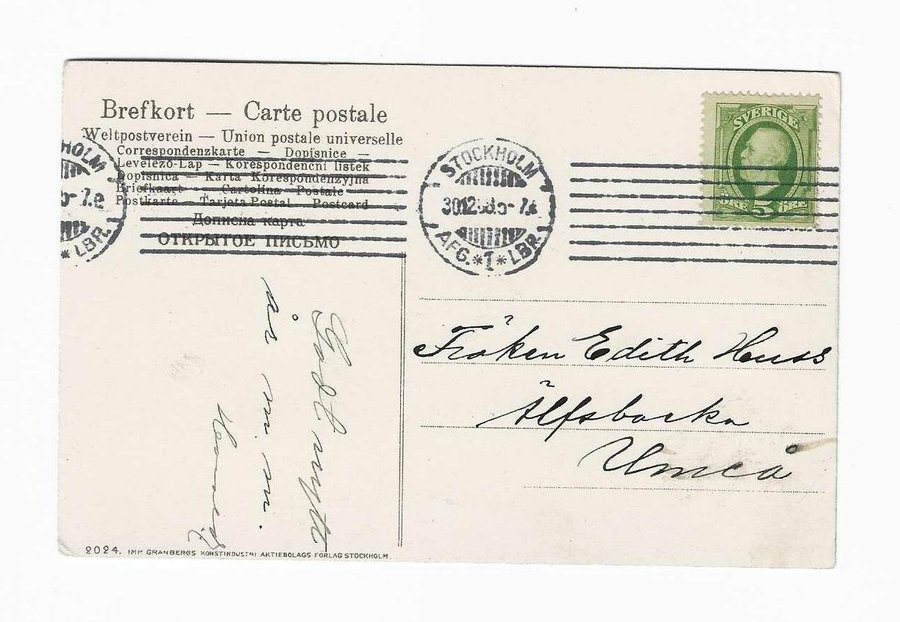 Brefkort — Carte postale
Weltpostverein — Union postale universelle
Correspondenzkarte — Dopisnice
Levelező-Lap — Korespondenční lístek
Dopisnica — Karta Korespondenzyjna
Briefkaart — Cartolina Postale
Postkarte — Tarjeta Postal — Postcard
Дописна карта
ОТКРЫТОЕ ПИСЬМО
HOLM
5-7.e
* LBR.
STOCKHOLM
AFG. *1* LBR.
SVERIGE
ÖRE 5 ÖRE
Godt nytt
år m. m.
Fröken Edith Huss
Älfsbacka
Umeå
2024. IMP. GRANBERGS KONSTINDUSTRI AKTIEBOLAGS FÖRLAG STOCKHOLM.